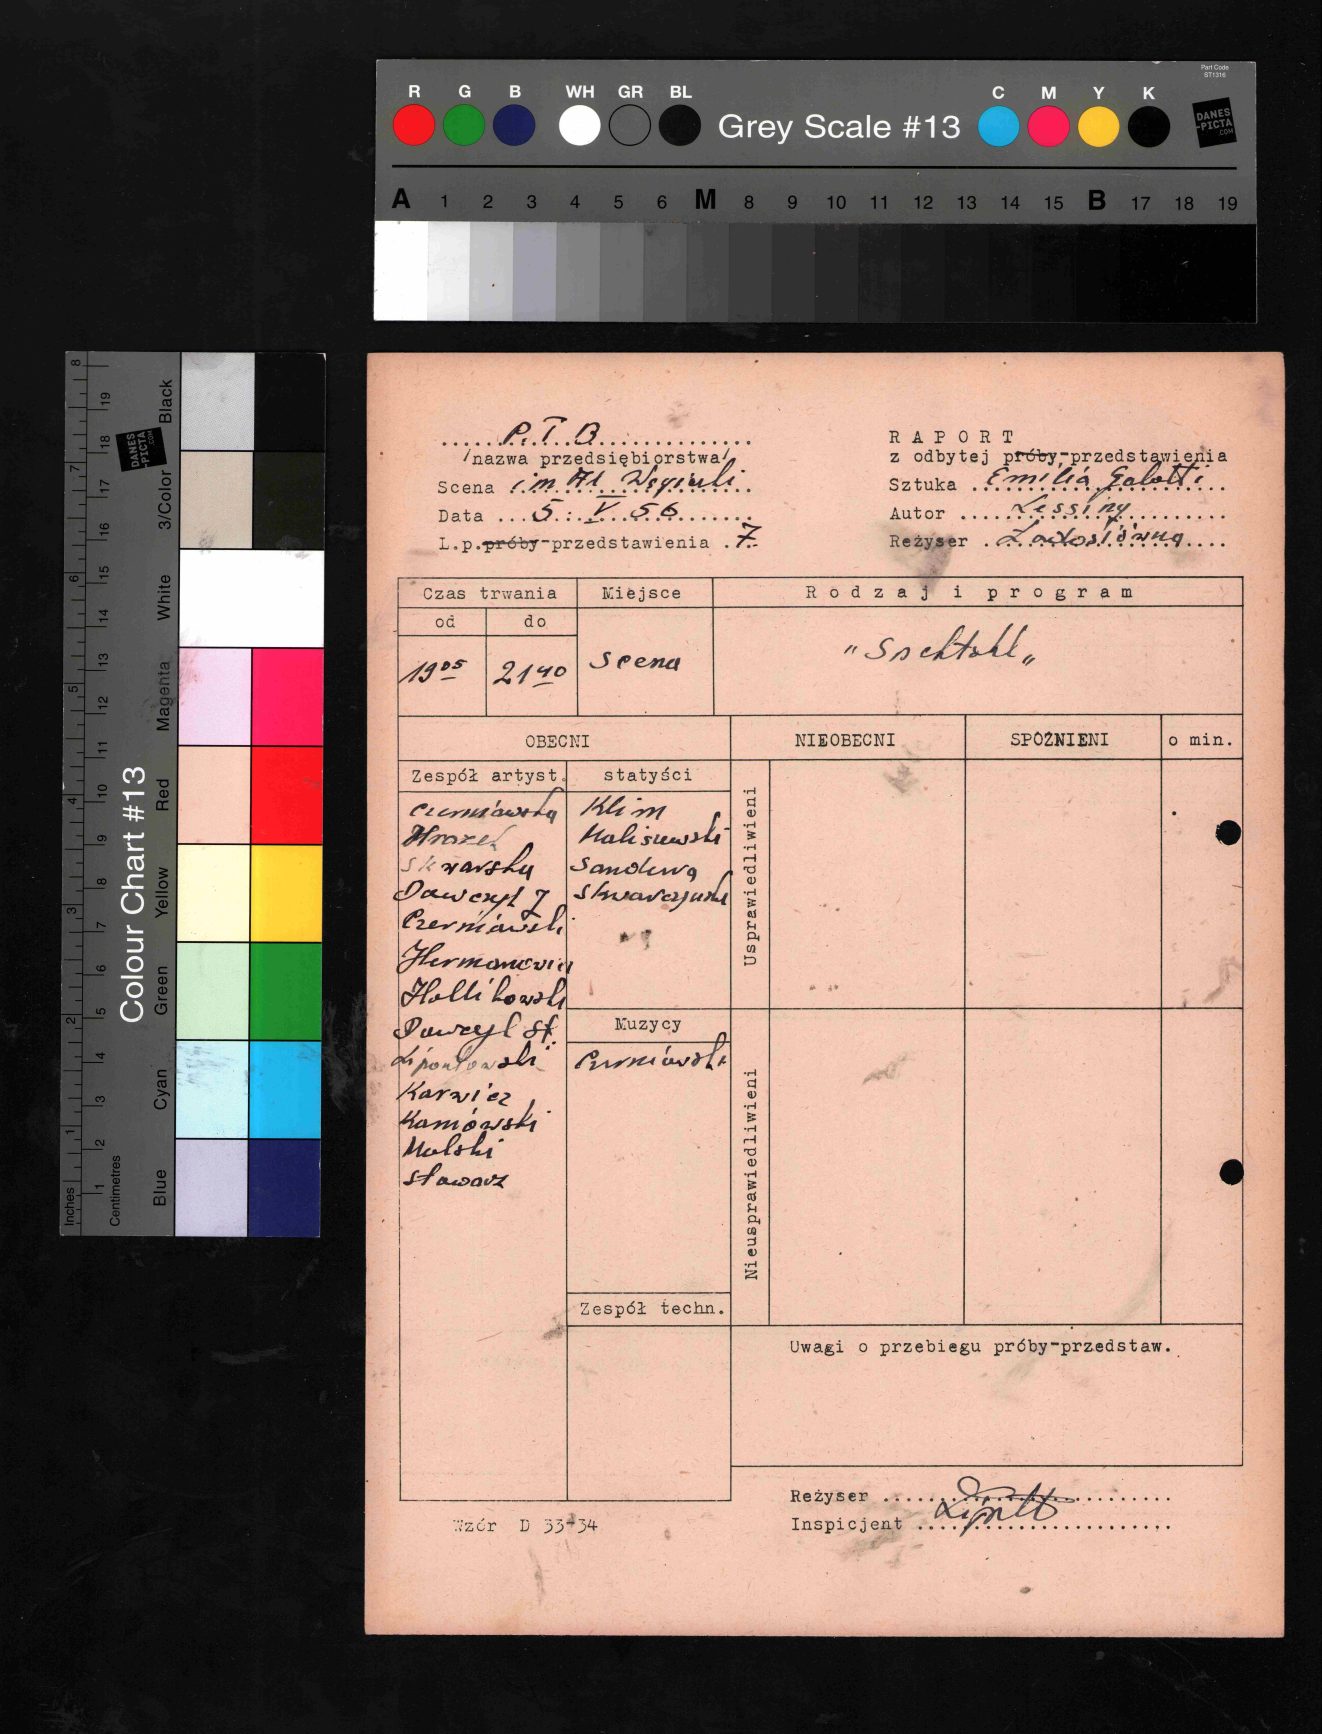 Part Code
ST1316
R G B WH GR BL Grey Scale #13 C M Y K
DANES
-PICTA
.COM
A 1 2 3 4 5 6 M 8 9 10 11 12 13 14 15 B 17 18 19
Colour Chart #13
DANES
-PICTA
.COM
Black
3/Color
White
Magenta
Red
Yellow
Green
Cyan
Blue
Inches
1 2 3 4 5 6 7 8
Centimetres
1 2 3 4 5 6 7 8 9 10 11 12 13 14 15 16 17 18 19
P.T.B
/nazwa przedsiębiorstwa/
Scena im Al Węgierki
Data 5. V 56
L.p. próby-przedstawienia 7
RAPORT
z odbytej próby-przedstawienia
Sztuka Emilia Galotti
Autor Lessing
Reżyser
Czas trwania
od do
Miejsce
Rodzaj i program
19 05 21 40 Scena
"Spektakl"
OBECNI NIEOBECNI SPÓŹNIENI o min.
Zespół artyst. statyści
Czerniawska
Mrozek
Skwarska
Dawczyl J
Czerniawski
Hermanowicz
Hollikowski
Dawczyl St.
Karwicz
Kamiówski
Malski
Stawarz
Klim
Maliszewski
Muzycy
Czerniawski
Usprawiedliwieni
Nieusprawiedliwieni
Zespół techn.
Uwagi o przebiegu próby-przedstaw.
Reżyser
Inspicjent
Wzór D 33-34